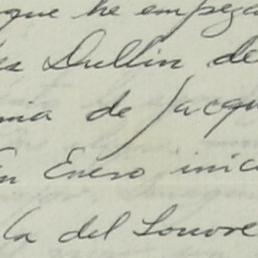 que he empeza
es Dullin de
mia de Jacqu
En Enero inici
la del Louvre